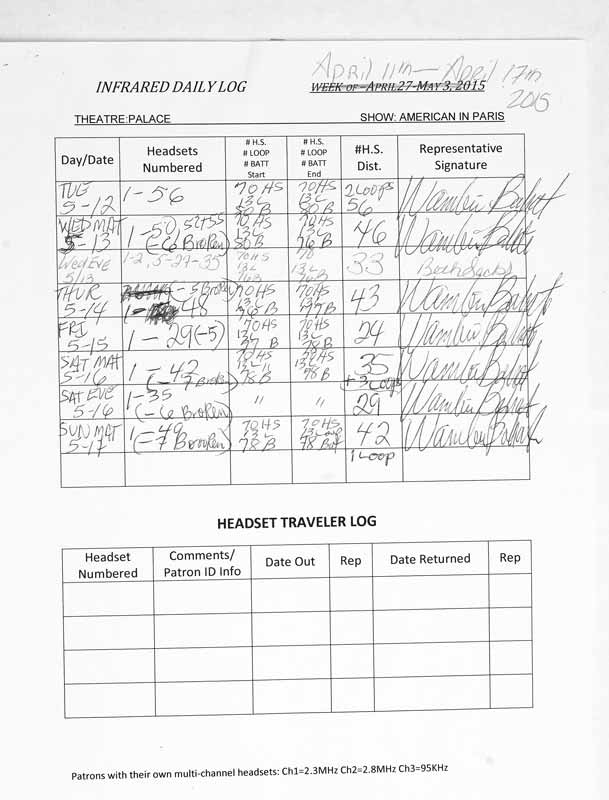 April 11th - April 17th
2015
INFRARED DAILY LOG
WEEK OF -APRIL27-MAY 3, 2015
THEATRE:PALACE
SHOW: AMERICAN IN PARIS
Day/Date Headsets Numbered # H.S. # LOOP # BATT Start # H.S. # LOOP # BATT End #H.S. Dist. Representative Signature
TUE 5-12 1-56 70 HS 13 L 50 B 70 HS 13 L 50 B 2 Loops 56
WED MAT 5-13 1-50, 52+55 (-6 Broken) 70 HS 13 L 50 B 70 HS 13 L 76 B 46
Wed Eve 5/13 1-2, 5-27-35 70 HS 13 L 76 B 70 13 L 33 Beth Sacks
THUR 5-14 (-5 Broken) 1-48 70 HS 13 L 70 HS 13 L 43
FRI 5-15 1-29(-5) 70 HS 13 L 77 B 70 HS 13 L 78 B 24
SAT MAT 5-16 1-42 (-7 Broken) 70 HS 13 L 78 B 70 HS 13 L 78 B 35 + 3 Loops
SAT EVE 5-16 1-35 (-6 Broken) " " 29
SUN MAT 5-17 1-49 (-7 Broken) 70 HS 13 L 78 B 70 HS 13 Loop 78 Bat 42
1 LOOP
HEADSET TRAVELER LOG
Headset Numbered Comments/ Patron ID Info Date Out Rep Date Returned Rep
Patrons with their own multi-channel headsets: Ch1=2.3MHz Ch2=2.8MHz Ch3=95KHz